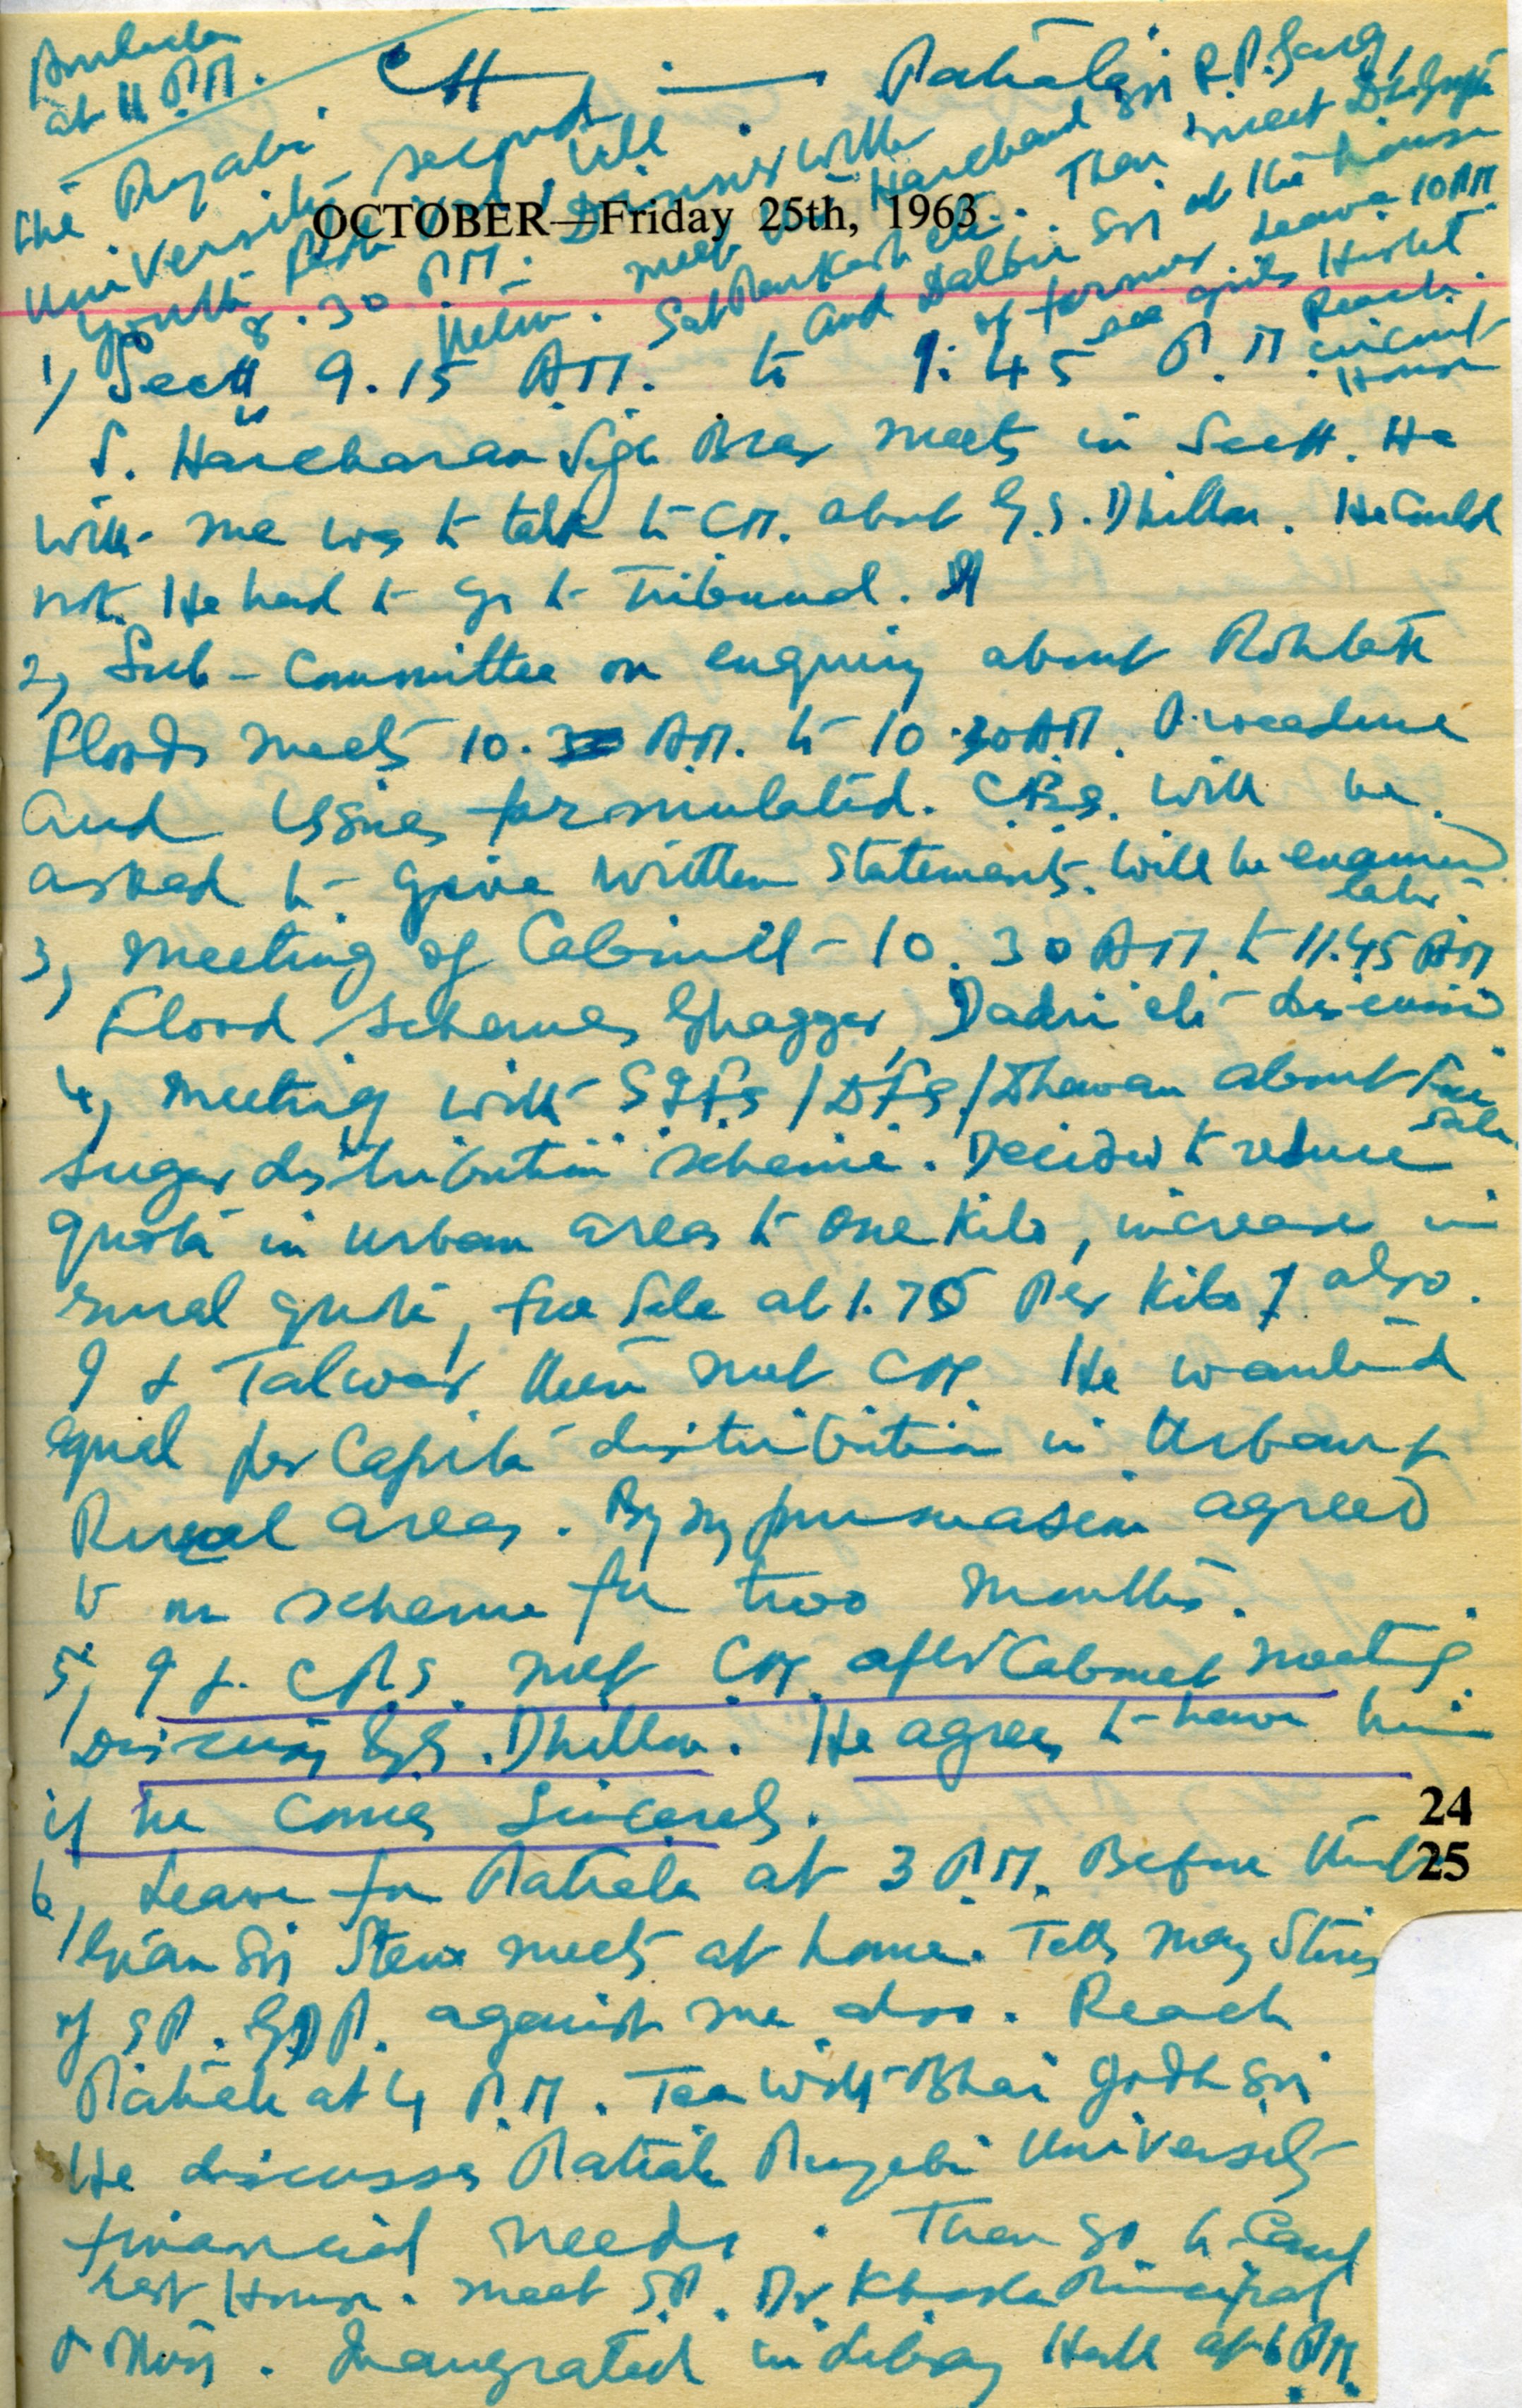 Ambala
at 11 P.M.
CH — Patiala
OCTOBER—Friday 25th, 1963
the Punjabi
University second
Youth Festival till
8.30 P.M. Dinner with
them. meet Harchand Sn R.P. Garg,
Sat Parkash etc. Then meet
and Dalbir Sn at the house
of former Leave 10 PM
see girls Hostel
Reach
circuit
House
1) Sectt 9.15 A.M. to 1.45 P.M.
S. Harcharan Singh Brar meets in Sectt. He
with me was to talk to CM. about G.S. Dhillon. He could
not. He had to go to Tribunal.
2) Sub-Committee on enquiry about Rohtak
Floods meets 10. A.M. to 10.30 AM. Procedure
and issues formulated. will be
asked to give written statements. Will be examined
later
3) Meeting of Cabinet - 10.30 AM. to 11.45 AM
Flood schemes, Ghaggar, Dadri etc discussed
4) Meeting with S.F.S/D.F.S./Dhawan about Free
Sale
sugar distribution scheme. Decided to reduce
quota in urban areas to one kilo, increase in
rural quota, free sale at 1.75 per kilo also.
I & Talwar then met CM. He wanted
equal per capita distribution in Urban &
Rural areas. By my persuasion agreed
to our scheme for two months.
5) I & C.P.S. met CM. after Cabinet meeting
Discuss G.S. Dhillon. He agrees to have him
if he comes sincerely.
24
25
6) Leave for Patiala at 3 P.M. Before that
Gian Sn meets at home. Tells many stories
of S.P. G.D.P. against me also. Reach
Patiala at 4 P.M. Tea with Bhai Jodh Sn
He discusses Patiala Punjabi University
financial needs. Then go to Canal
Rest House. Meet S.P. Dr. Principal
& others. Inaugrated in Library Hall at 6 P.M.